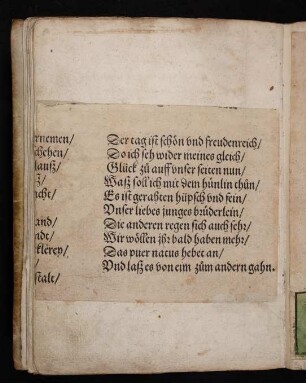 ernemen/
schehen/
lauß/
ß/
acht/
and/
ndt/
cklerey/
/
stalt/
Der tag ist schön vnd freudenreich/
Do ich seh wider meines gleich/
Glück zů auff vnser seiten nun/
Waß soll ich mit dem hünlin thůn/
Es ist gerahten hüpsch vnd fein/
Vnser liebes junges brüderlein/
Die anderen regen sich auch sehr/
Wir wöllen jhr bald haben mehr/
Das puer natus hebet an/
Vnd laß es von eim zům andern gahn.